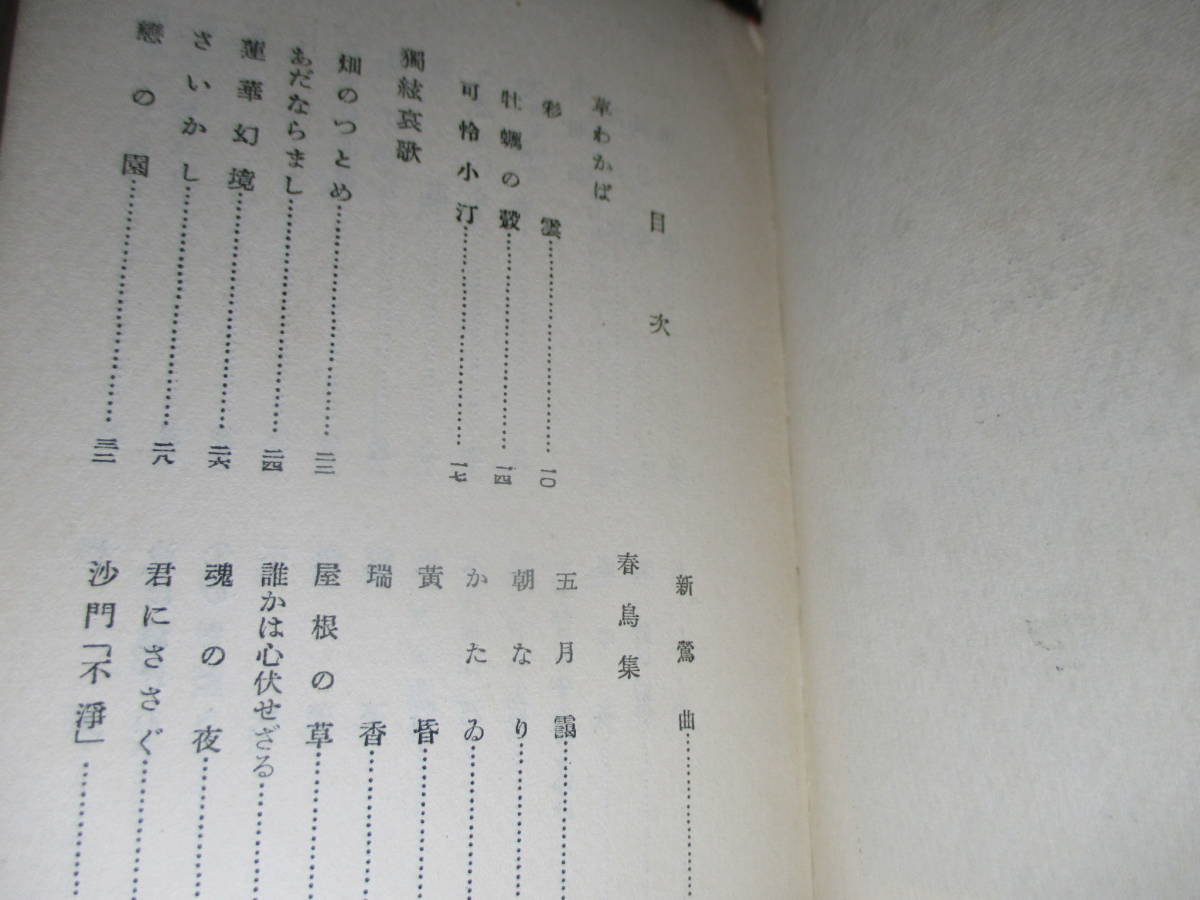 目次
草わかば
彩雲……………………一〇
牡蠣の殼……………………一四
可怜小汀……………………一七
獨絃哀歌
畑のつとめ……………………二二
あだならまし……………………二四
蓮華幻境……………………二六
さいかし……………………二八
戀の園……………………三二
新鶯曲……………………
春鳥集
五月靄……………………
朝なり……………………
かたゐ……………………
黄昏……………………
瑞香……………………
屋根の草……………………
誰かは心伏せざる……………………
魂の夜……………………
君にささぐ……………………
沙門「不淨」……………………